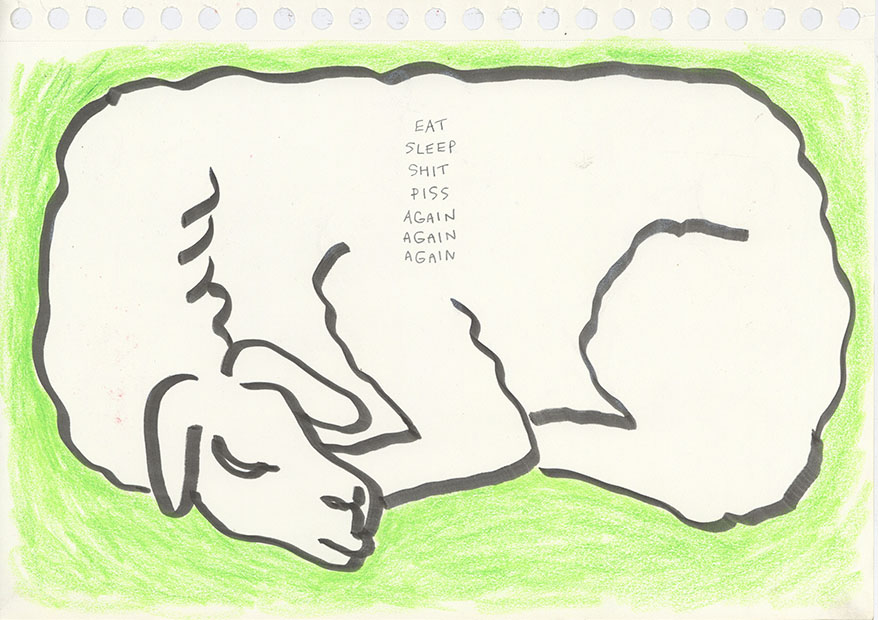 EAT
SLEEP
SHIT
PISS
AGAIN
AGAIN
AGAIN